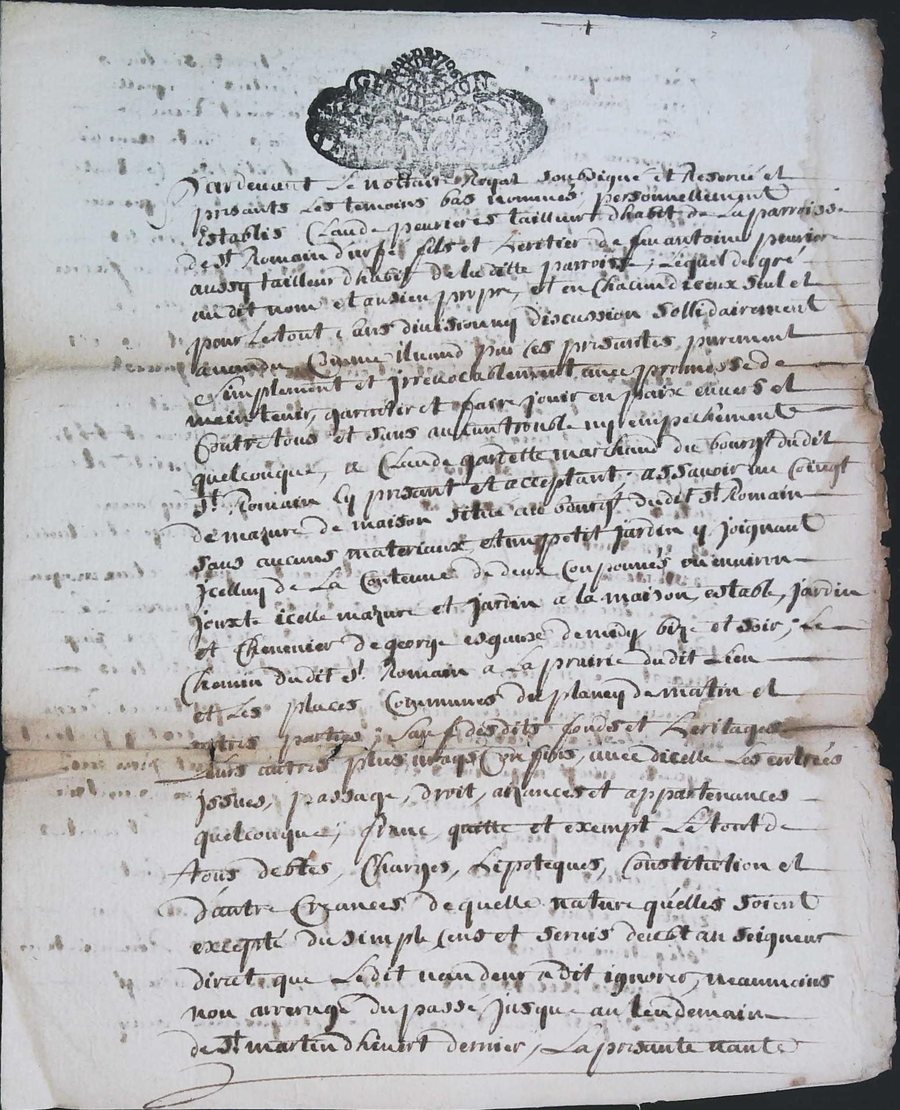 GEN DE LION
Pardevant Le nottaire Royal soubsigné et Reservé et
présants Les temoins bas nommés, personnellement
Establis Claude peurieres tailleurt dhabit de La parroisse
de st Romain d'urfé fils et heretier de feu antoine peurier
aussy tailleur dhabit de laditte parroisse, Lequel de gré
audit nom et an sien propre, et en Chacun diceux seul et
pour Letout sans division ny discussion sollidairement
a vandu Comme il vand par ces présantes purement
et simplement et jrrevocablement avec promesse de
maintenir, garentir et faire jouir en paix envers et
Contre tous et sans aucun trouble ny empechement
quelconque, a Claude garette marchand du bourgt dudit
st Romain Cy présant et acceptant, assavoir un Coingt
de mazure de maison situé au bourgt dudit st Romain
sans aucuns materiaux, et un petit jardin y joignant
jcelluy de La Contenue de deux Couponnés ou environ
jouxte icelle mazure et jardin a la maison, estable, jardin
et Chenevier de george de midy bize et soir, Le
Chemin dudit st Romain a La prairie dudit Lieu
et Les places Communes du planey de matin et
autres parties, sauf desdits fonds et heritages
Leurs autres plus vrays Confins, avec dicelle Les entrées
jssues, passage, droit, aizances et appartenances
quelconque, franc, quitte et exempt Le tout de
tous debtes, Charges, hipoteques, Constitution et
d'autre Creances de quelle nature qu'elles soient
excepté du simple Cens et servis deubt au seigneur
direct que Ledit vandeur a dit ignorer, neaumoins
non arreragé du passé jusque au Lendemain
de st martin dhivert dernier, La présante vante